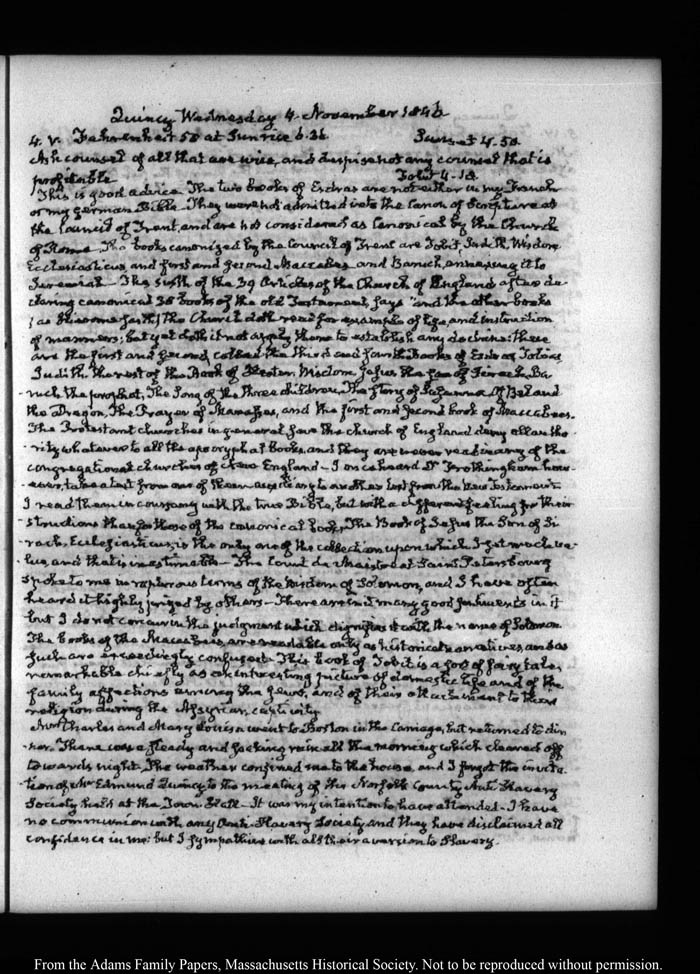 Quincy Wednesday 4. November 1846
4. V. Fahrenheit 50 at Sunrise 6.36 Sunset 4.50
Ask counsel of all that are wise, and despise not any counsel that is
profitable Tobit 4-18
This is good advice. The two books of Esdras are not either in my French
or my german Bible. They were not admitted into the Canon of Scripture at
the Council of Trent, and are not considered as Canonical by the Church
of Rome. The books canonized by the Council of Trent are Tobit, Judith, Wisdom
Ecclesiasticus, and first and second Maccabees and Baruch, annexing it to
Jeremiah. The sixth of the 39 Articles of the Church of England after de-
claring canonical books of the old Testament, says "and the other books
(as Hierome saith) the Church doth read for example of life and instruction
of manners; but yet doth it not apply them to establish any doctrine: these
are the first and second called the third and fourth Books of Esdras, Tobias
Judith, the rest of the Book of Hester, Wisdom, Jesus the son of Sirach, Ba-
ruch the prophet, The Song of the three children, The story of Susanna, Of Bel and
the Dragon, The Prayer of Manasses, and the first and second book of Maccabees.
The Protestant churches in general save the church of England deny all autho-
rity whatever to all the apocryphal books, and they are never read in any of the
congregational churches of New England. I once heard Dr Frothingham how-
ever, take a text from one of them auxiliary to another text from the New Testament
I read them in company with the true Bible, but with a different feeling for their
structions than for those of the canonical book. The Book of Jesus the Son of Si-
rach, Ecclesiasticus, is the only one of the collection upon which I set much va-
lue, and that is inestimable. The Count de Maistre at Saint Petersbourg
spoke to me in rapturous terms of the Wisdom of Solomon, and I have often
heard it highly prized by others. There are many good sentiments in it
but I do not concur in the judgment which dignifies it with the name of Solomon
The books of the Maccabees, are readable only as historical narratives, and as
such are exceedingly confused. This book of Tobit is a sort of fairy tale,
remarkable chiefly as an interesting picture of domestic life and of the
family affections among the Jews, and of their attachment to their
religion during the Assyrian captivity.
Mrs Charles and Mary Louisa went to Boston in the Carriage, but returned to din-
ner. There was a steady and soaking rain all the morning which cleared off
towards night. The weather confined me to the house, and I forgot the invita-
tion of Mr Edmund Quincy to the meeting of the Norfolk County Anti Slavery
Society held at the Town Hall. It was my intention to have attended. I have
no communion with any Anti-Slavery Society and they have disclaimed all
confidence in me: but I sympathise with all their aversion to Slavery.
From the Adams Family Papers, Massachusetts Historical Society. Not to be reproduced without permission.